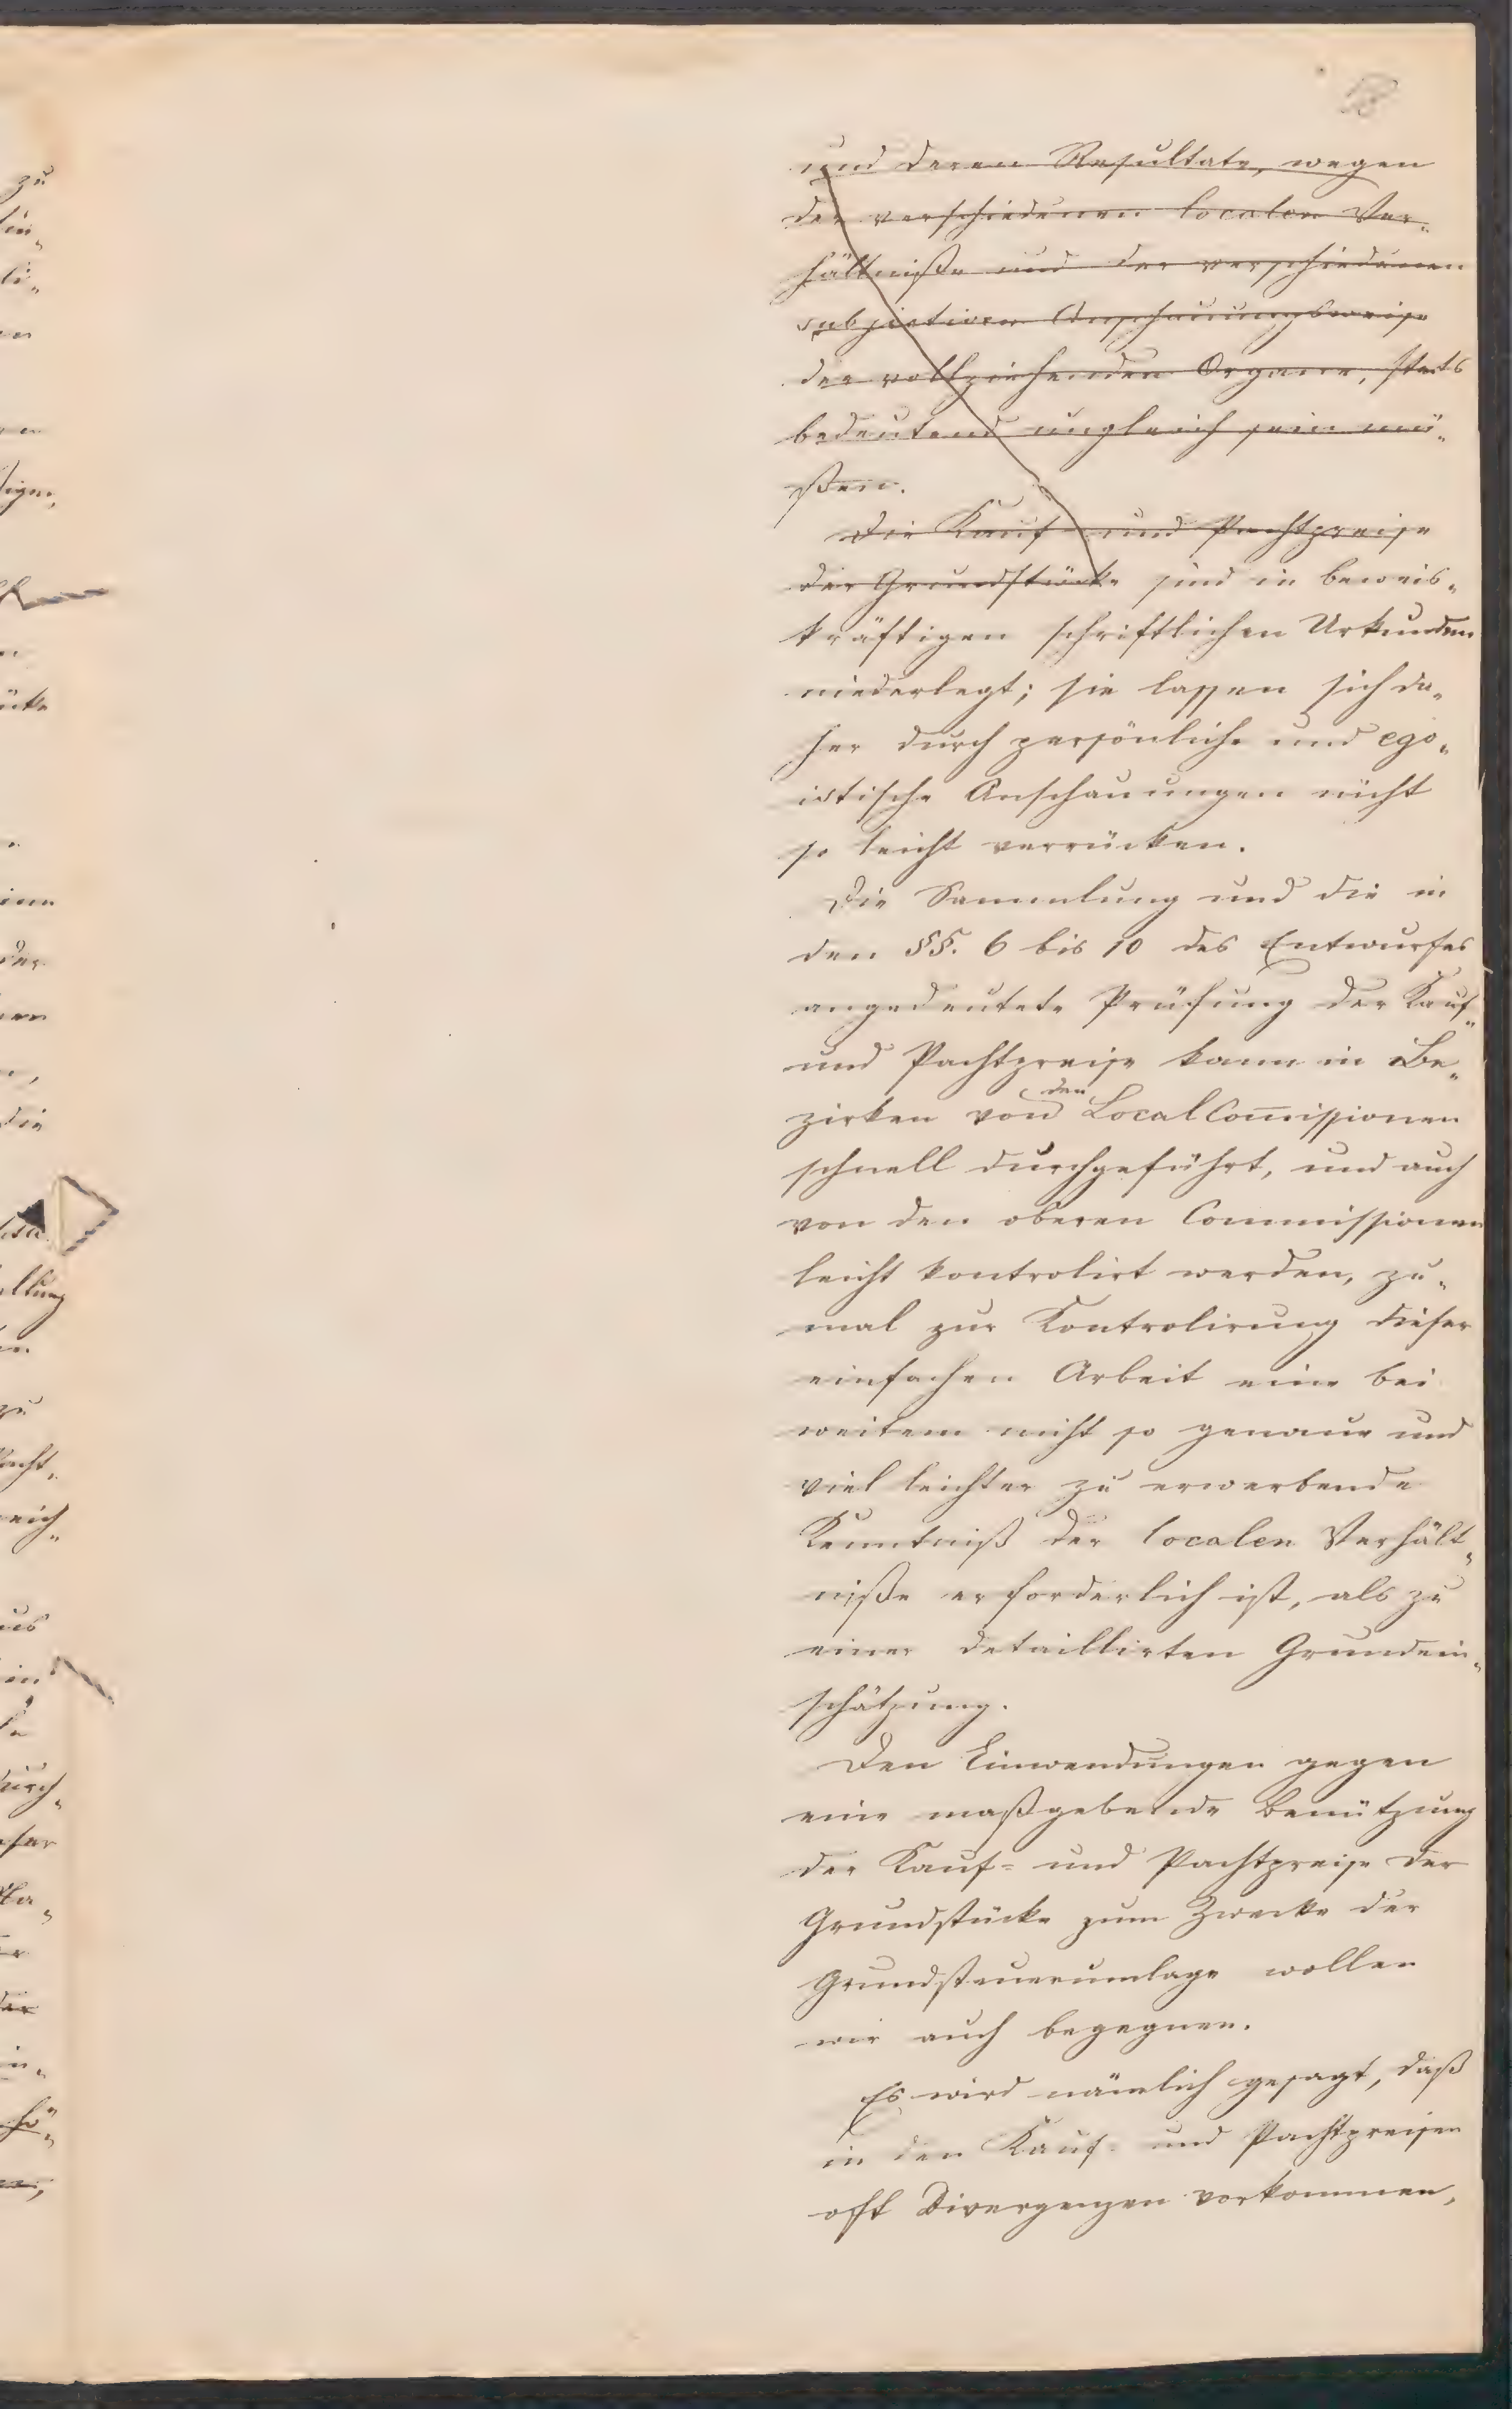 18
und deren Resultate, wegen
der verschiedenen localen Ver„
hältniße und der verschiedenen
subjectiven Anschauungsweise
der vollziehenden Organe, stets
bedeutend ungleich sein mü„
ßen.
Die Kauf- und Pachtpreise
der Grundstücke sind in beweis„
kräftigen schriftlichen Urkunden
niederlegt; sie lassen sich da„
her durch persönliche und ego„
istische Anschauungen nicht
so leicht verrücken.
Die Sammlung und die in
den §§. 6 bis 10 des Entwurfes
angedeutete Prüfung der Kauf„
und Pachtpreise kann in Be„
den
zirken von LocalCom̄issionen
schnell durchgeführt, und auch
von den oberen Commissionen
leicht kontrolirt werden, zu„
mal zur Kontrolirung dieser
einfachen Arbeit eine bei
weitem nicht so genaue und
viel leichter zu erwerbende
Kenntniß der localen Verhält„
niße erforderlich ist, als zu
einer detaillirten Grundein„
schätzung.
Den Einwendungen gegen
eine maßgebende Benützung
der Kauf- und Pachtpreise der
Grundstücke zum Zwecke der
Grundsteuerumlage wollen
wir auch begegnen.
Es wird nämlich gesagt, daß
in den Kauf- und Pachtpreisen
oft Divergenzen vorkommen,